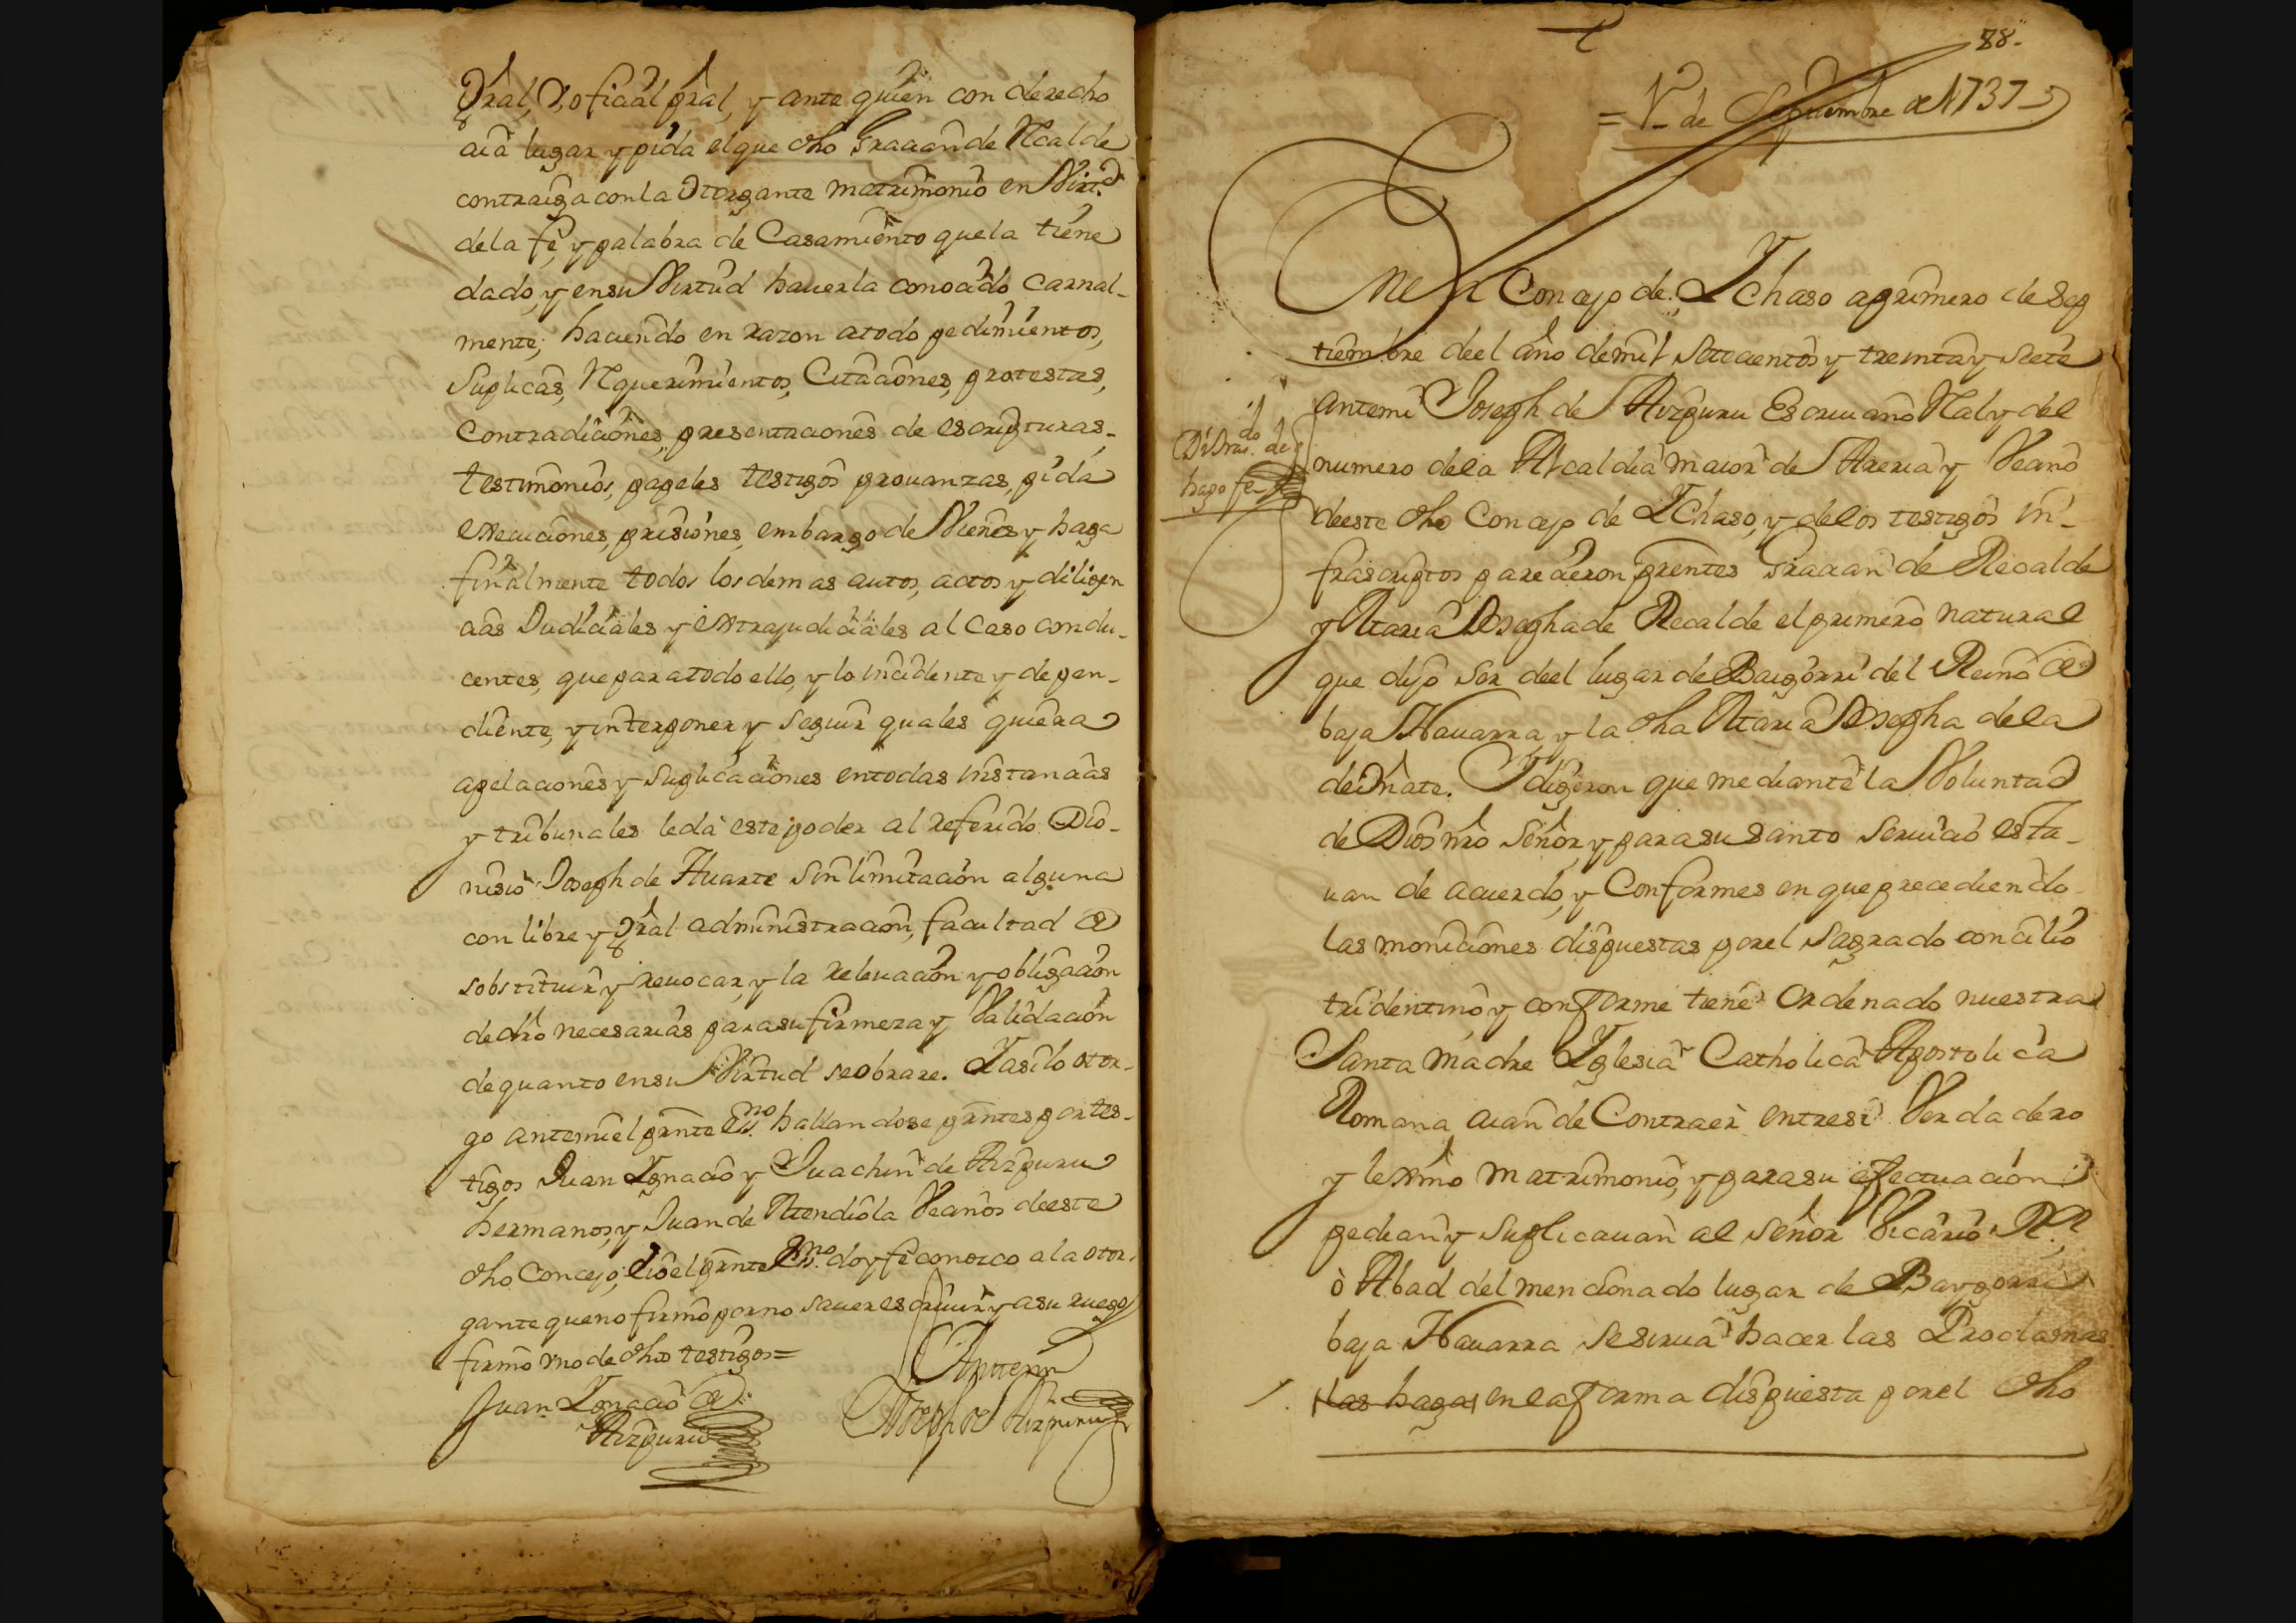 Gral, V, oficial pral, y ante quien con derecho
aia lugar y pida el que dho Gracian de Rcalde
contraiga con la Otorgante matrimonio en Virt.d
de la fe, y palabra de Casamiento que la tiene
dado, y en su Virtud hauerla conocido carnal-
mente; haciendo en razon a todo pedimientos,
Suplicas, Rquerimientos, Citaciones, protestas,
Contradiciones, presentaciones de escripturas-
testimonios, papeles testigos prouanzas, pida
execuciones, prisiones, embargo de Vienes y haga
finalmente todos los demas autos, actos y diligen
cias Judiciales y extrajudiciales al Caso condu-
centes, que para todo ello, y lo incidente y depen-
diente, y interponer y seguir quales quiera
apelaciones y suplicaciones en todas instancias
y tribunales le da este poder al referido Dio-
nisio Joseph de Huarte sin limitacion alguna
con libre y gral administracion, facultad de
sobstituir y reuocar, y la releuacion y obligacion
de dro necesarias para su firmeza y Validacion
de quanto en su Virtud se obrare. Y asi lo otor-
go ante mi el prnte es.no hallandose prntes por tes-
tigos Juan Ygnacio y Juachin de Aizpuru
hermanos, y Juan de Mendiola Vecinos de este
dho Concejo; e io el prnte es.no doy fe conozco a la otor-
gante que no firmo por no sauer escriuir y a su ruego
firmo vno de dhos testigos=
Juan Ygnacio de
Aizpuru
Ante mi
Joseph de Aizpuru
88.
= 1.o de Septiembre de 1737
En el Concejo de Ychaso a primero de Sep
tiembre de el año de mil setecientos y treinta y siete
ante mi Joseph de Aizpuru Escriuano Ral y del
numero de la Alcaldia maior de Areria y Vecino
de este dho Concejo de Ychaso, y de los testigos in-
frascriptos parecieron prentes Gracian de Recalde
y Maria Josepha de Recalde el primero natural
que dijo ser de el lugar de Baigorri del Reino de
baja Nauarra, y la dha Maria Josepha de la
de Oñate. Y digeron que mediante la Voluntad
de Dios nro Señor, y para su santo seruicio esta-
uan de acuerdo, y Conformes en que precediendo
las moniciones dispuestas por el Sagrado concilio
tridentino, y conforme tiene Ordenado nuestra
Santa Madre Yglesia Catholica Apostolica
Romana, auian de Contraer entre si Verdadero
y lexmo matrimonio, y para su efectuacion
pedian y suplicauan al señor Vicario R.l
ò Abad del mencionado lugar de Baygorri
baja Nauarra se sirua hacer las Proclamas
las hagas en la forma dispuesta por el dho
Di tras.do de
hago fe